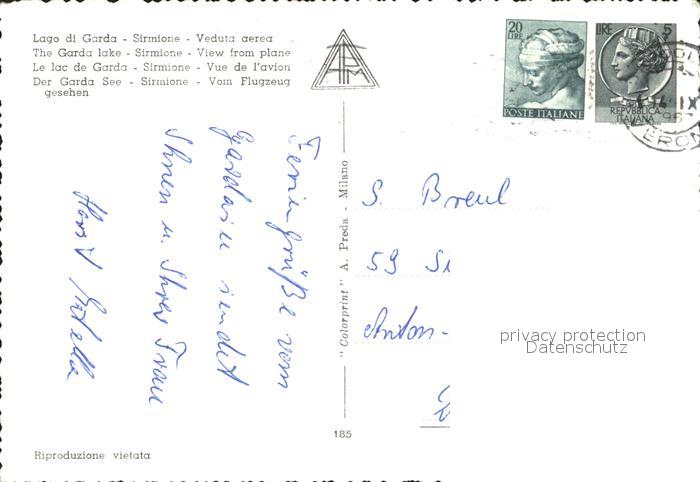 Lago di Garda - Sirmione - Veduta aerea
The Garda lake - Sirmione - View from plane
Le lac de Garda - Sirmione - Vue de l'avion
Der Garda See - Sirmione - Vom Flugzeug
gesehen
20
LIRE
POSTE ITALIANE
LIRE 5
REPVBBLICA
ITALIANA
14 IX
Feriengrüße vom
Gardasee sendet
Ihnen u. Ihrer Frau
Horst
"Colorprint" A. Preda - Milano
S. Breul
59 Si
Anton-
privacy protection
Datenschutz
185
Riproduzione vietata